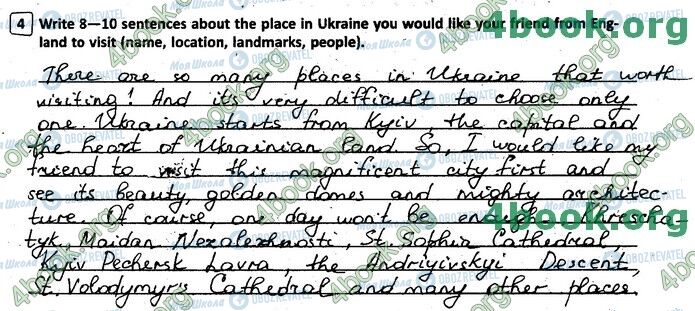 4 Write 8—10 sentences about the place in Ukraine you would like your friend from Eng-
land to visit (name, location, landmarks, people).
There are so many places in Ukraine that worth
visiting! And its very difficult to choose only
one. Ukraine starts from Kyiv the capital and
the heart of Ukrainian land. So, I would like my
friend to visit this magnificent city first and
see its beauty, golden domes and mighty architec-
ture. Of course, one day won't be enough. Khrescha-
tyk, Maidan Nezalezhnosti, St. Sophia Cathedral,
Kyiv Pechersk Lavra, the Andriyivskyi Descent,
St. Volodymyr's Cathedral and many other places.
4book.org
4book.org
4book.org